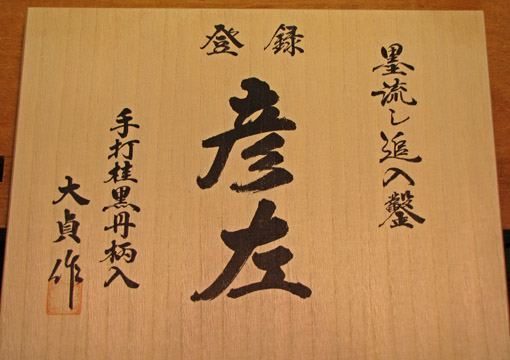 墨流し追入鑿
登録
彦左
手打桂黒丹柄入
大貞作